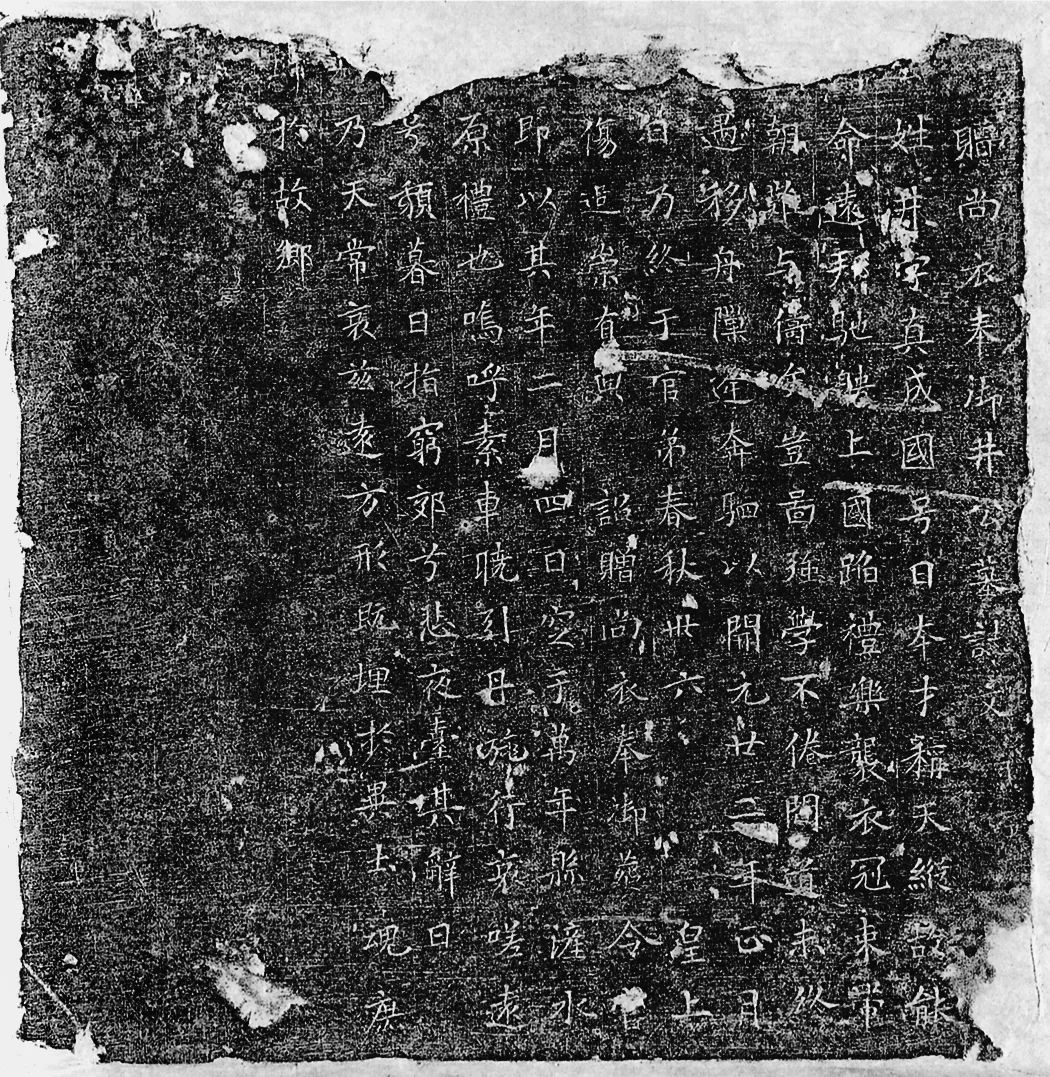 贈尚衣奉御井公墓誌文
姓井字真成國号日本才稱天縱故能
命遠邦馳騁上國蹈禮樂襲衣冠束帶
朝難与儔矣豈圖強學不倦聞道未終
遇移舟隙逢奔駟以開元廿二年正月
日乃終于官弟春秋卅六 皇上
傷追崇有典 詔贈尚衣奉御葬令官
即以其年二月四日窆于萬年縣滻水
原禮也嗚呼素車曉引丹旐行哀嗟遠
兮頹暮日指窮郊兮悲夜臺其辭曰
乃天常哀茲遠方形既埋於異土魂庶
於故鄉